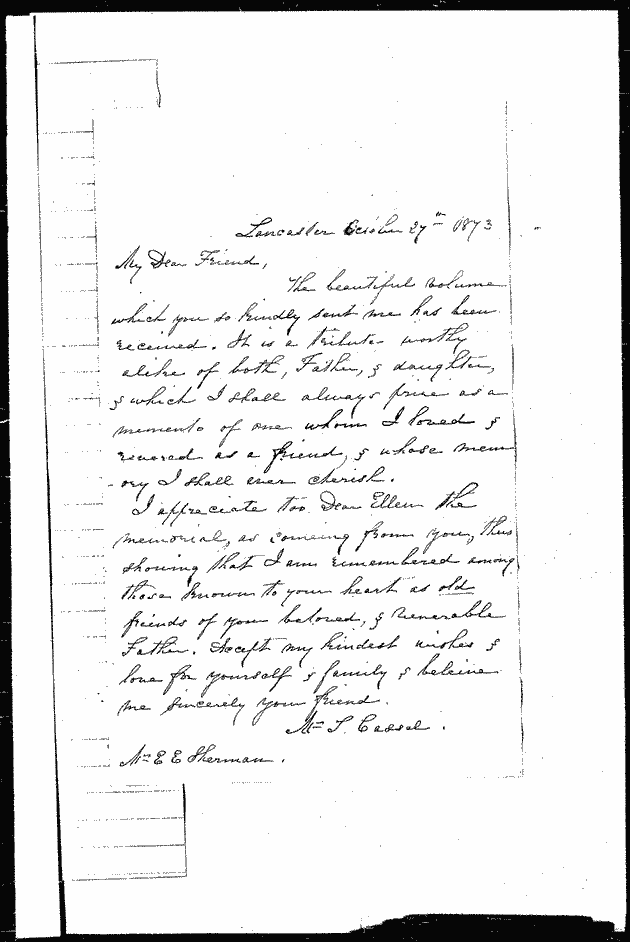 Lancaster October 27th 1873
My Dear Friend,
The beautiful volume
which you so kindly sent me has been
received. It is a tribute worthy
alike of both, Father, & daughter,
& which I shall always prize as a
memento of one whom I loved &
revered as a friend, & whose mem
-ory I shall ever cherish.
I appreciate too Dear Ellen the
memorial, as comeing from you, thus
showing that I am remembered among
those known to your heart as old
friends of your beloved, & venerable
Father. Accept my kindest wishes &
love for yourself & family & beleive
me sincerely your friend.
Mrs S. Cassel.
Mrs E E Sherman.